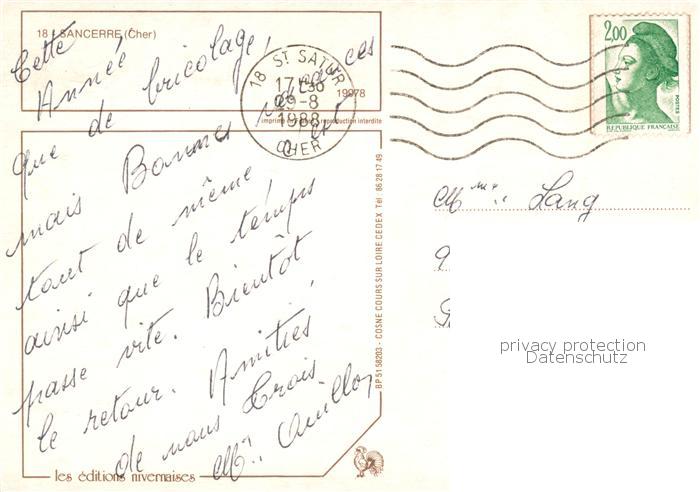 18 - SANCERRE (Cher)
Cette
Année
que de bricolage!
mais Bonnes vacances
tout de même et
ainsi que le temps
passe vite. Bientôt
le retour. Amitiés
de nous trois
M.
19978
imprimé reproduction interdite
18 ST SATUR
17H30
29-8
1988
CHER
2,00
POSTES
REPUBLIQUE FRANÇAISE
Mme Lang
9
BP 51 58203 - COSNE COURS SUR LOIRE CEDEX Tél 86 28 17 49
les éditions nivernaises
privacy protection
Datenschutz